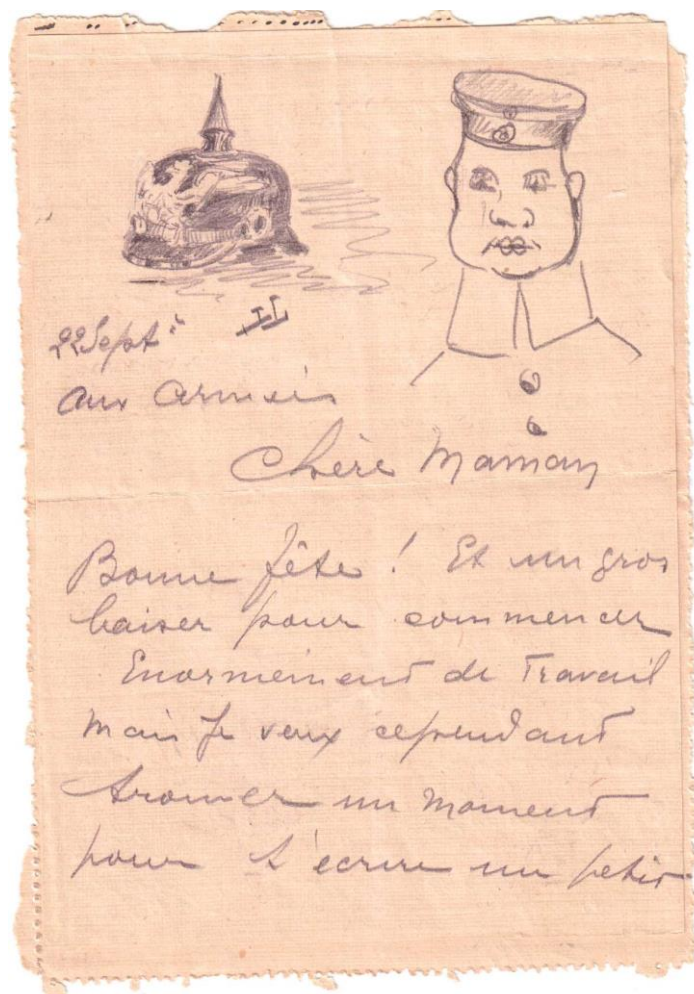 22 Sept.
aux armées
Chère Maman
Bonne fête ! Et un gros
baiser pour commencer
Enormement de Travail
mais je veux cependant
trouver un moment
pour t'ecrire un petit